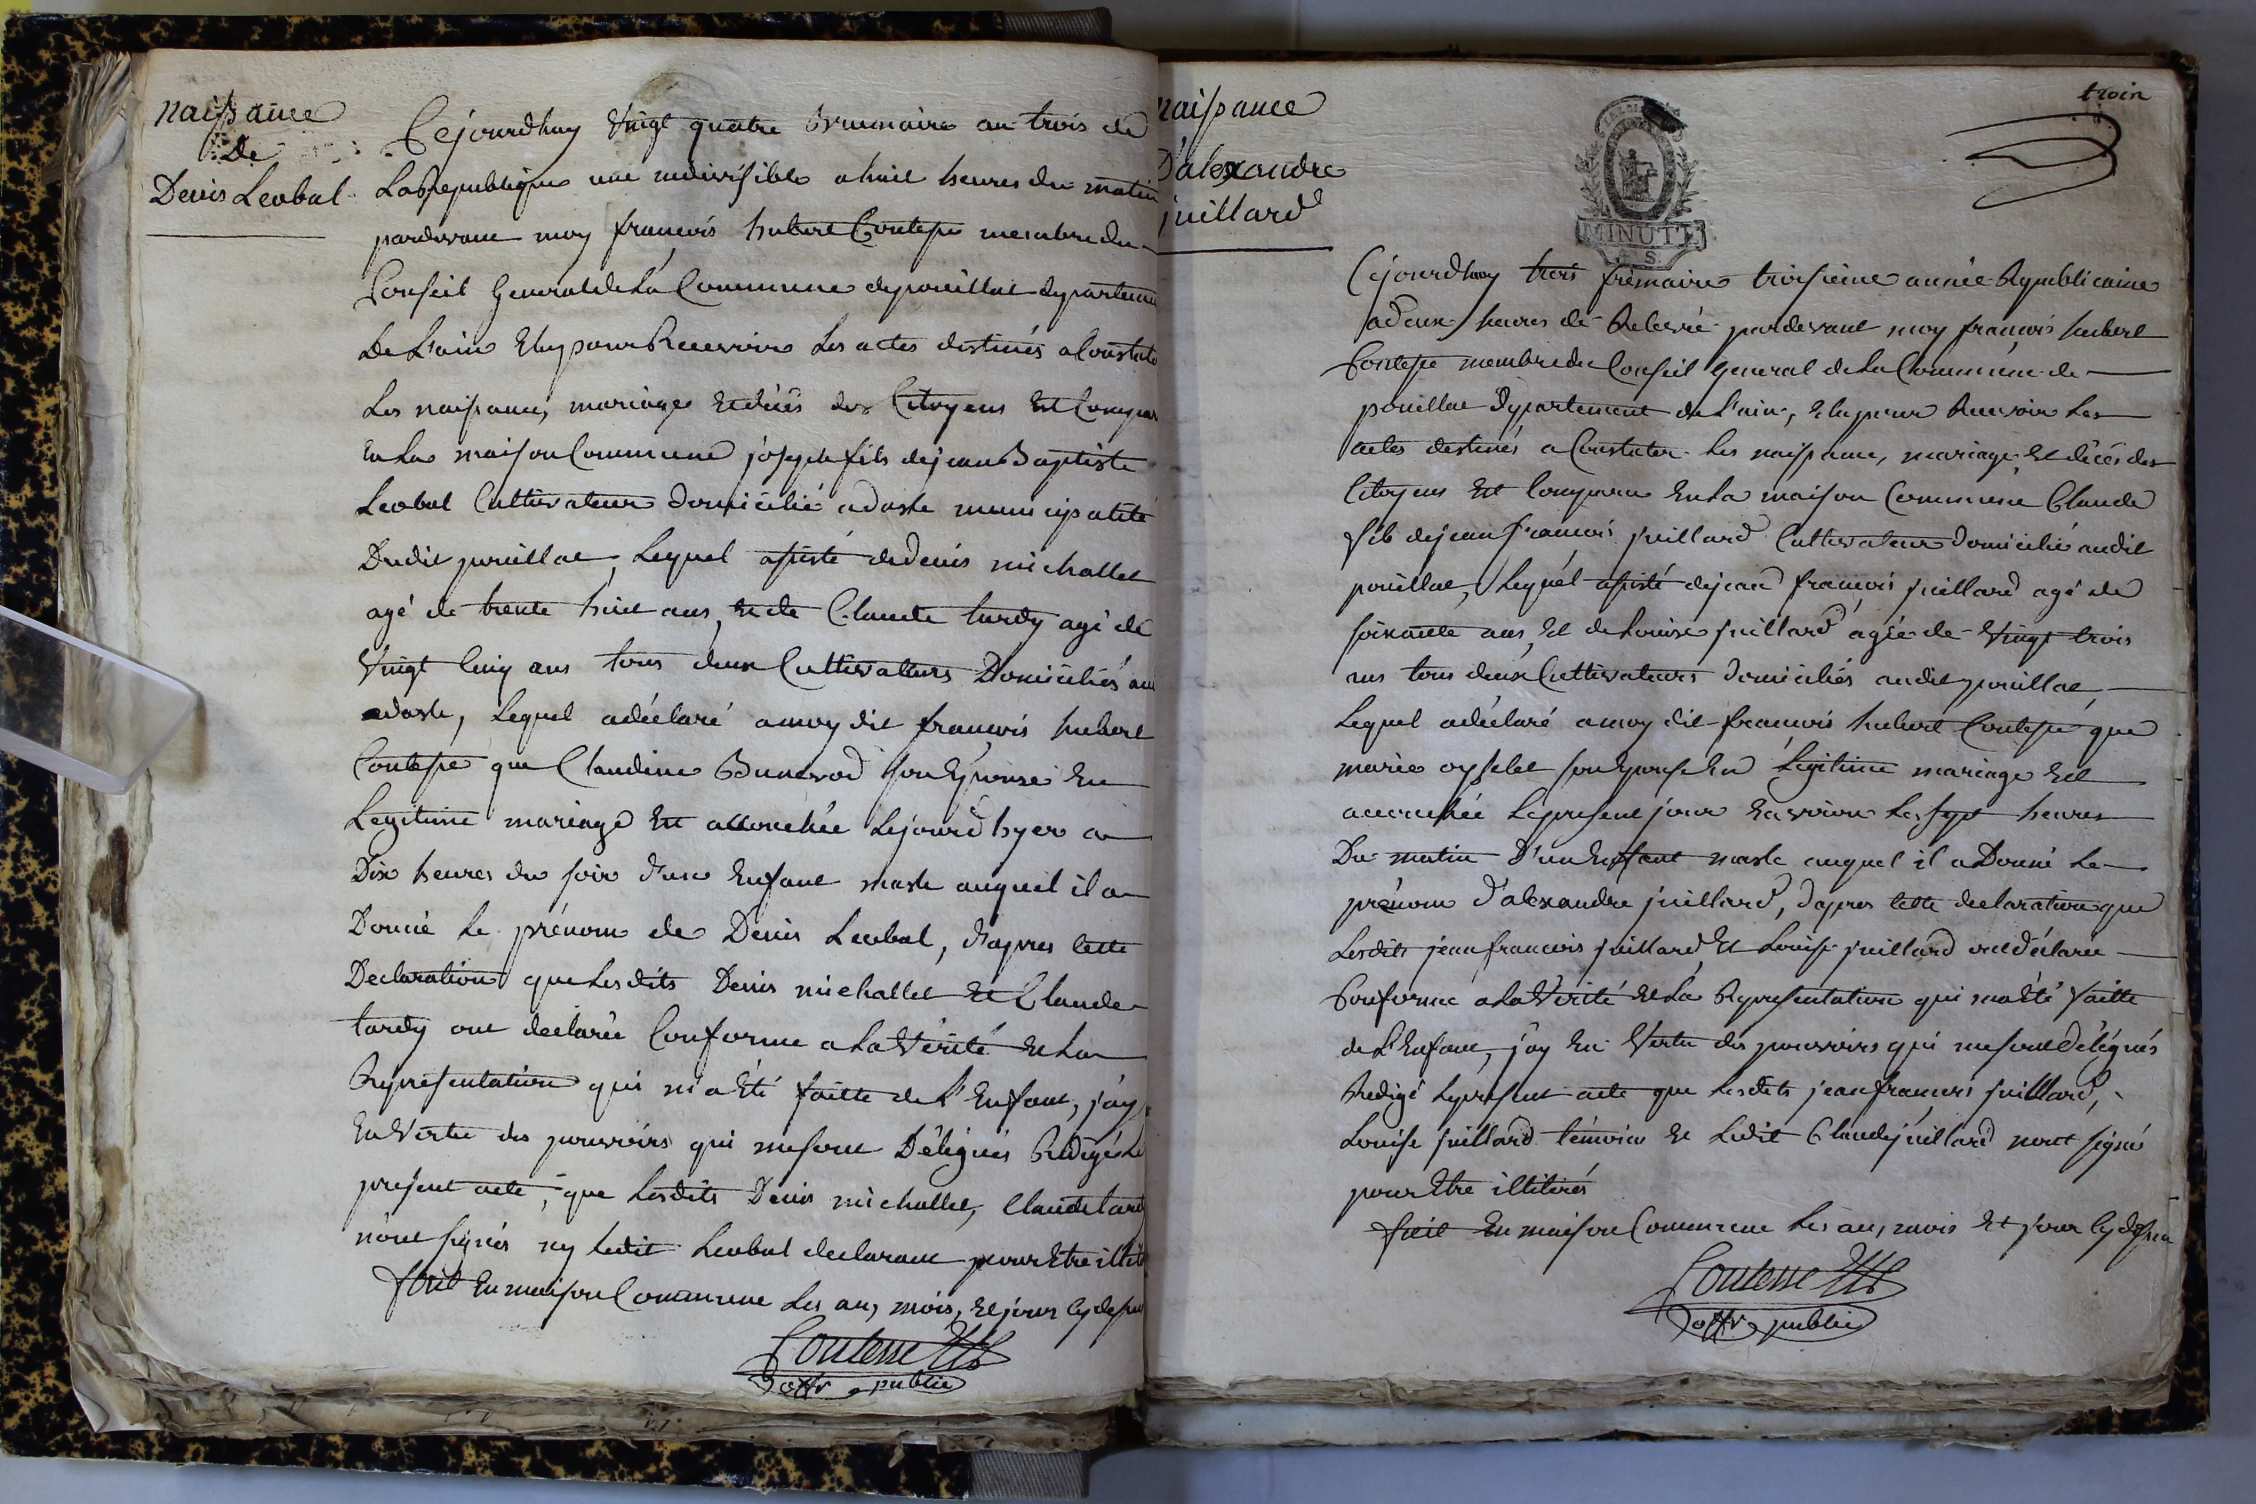 naissance
De
Denis Leobal
Cejourdhuy Vingt quatre Brumaire an trois de
La Republique une indivisible a huit heures du matin
pardevant moy françois hubert Contesse membre du
Conseil General de La Commune de pouillat departem
De L'ain Elu pour Recevoir Les actes destinés a Constate
Les naissance, mariage et décés des Citoyens Est Compar
En La maison Commune joseph fils de jean Baptiste
Leobal Cultivateur domicilié a dasle municipalité
Dudit pouillat, Lequel assisté de denis michallet
agé de trente huit ans, et de Claude tardy agé de
Vingt Cinq ans tous deux Cultivateurs Domiciliés au
adasle, Lequel a déclaré a moy dit françois hubert
Contesse que Claudine Bunevod son Epouse En
Legitime mariage Est accouchée Lejourd hyer a
Dix heures du soir d'un Enfant masle auquel il a
Donné Le prénom de Denis Leobal, d'apres cette
Declaration que Lesdits Denis michallet et Claude
tardy ont declarée Conforme a La Vérité et La
Représentation qui m'a Eté faitte de L'Enfant, j'ay
En Vertu des pouvoirs qui me sont Délégués Rédigé Le
présent acte, que Lesdits Denis michallet, Claude tard
n'ont signés ny Ledit Leobal declarant pour Etre illit
fait En maison Commune Les an, mois, et jour cy dessus
Contesse
offr public
troin
naissance
D'alexandre
juillard
MINUTE
Cejourdhuy trois frimaire troisieme année Republicaine
a deux heures de Relevée pardevant moy françois hubert
Contesse membre du Conseil General de La Commune de
pouillat departement de L'ain, Elu pour Recevoir Les
actes destinés a Constater Les naissance, mariage et décés des
Citoyens Est Comparu En La maison Commune Claude
fils de jean françois juillard Cultivateur domicilié audit
pouillat, Lequel assisté de jean françois juillard agé de
soixante ans, et de Louise juillard agée de Vingt trois
ans tous deux Cultivateurs domiciliés audit pouillat
Lequel a déclaré a moy dit françois hubert Contesse que
marie son Epouse En Légitime mariage Est
accouchée Le present jour Environ Les sept heures
Du matin D'un Enfant masle auquel il a Donné Le
prénom d'alexandre juillard, d'apres cette declaration que
Lesdits jean françois juillard et Louise juillard ont déclarée
Conforme a La Vérité et La Representation qui m'a Eté faitte
de L'Enfant, j'ay En Vertu des pouvoirs qui me sont Délégués
Redigé Le present acte que Lesdits jean françois juillard,
Louise juillard témoins et Ledit Claude juillard n'ont signé
pour Etre illitérés
fait En maison Commune Les an, mois et jour cy dessus
Contesse
offr public